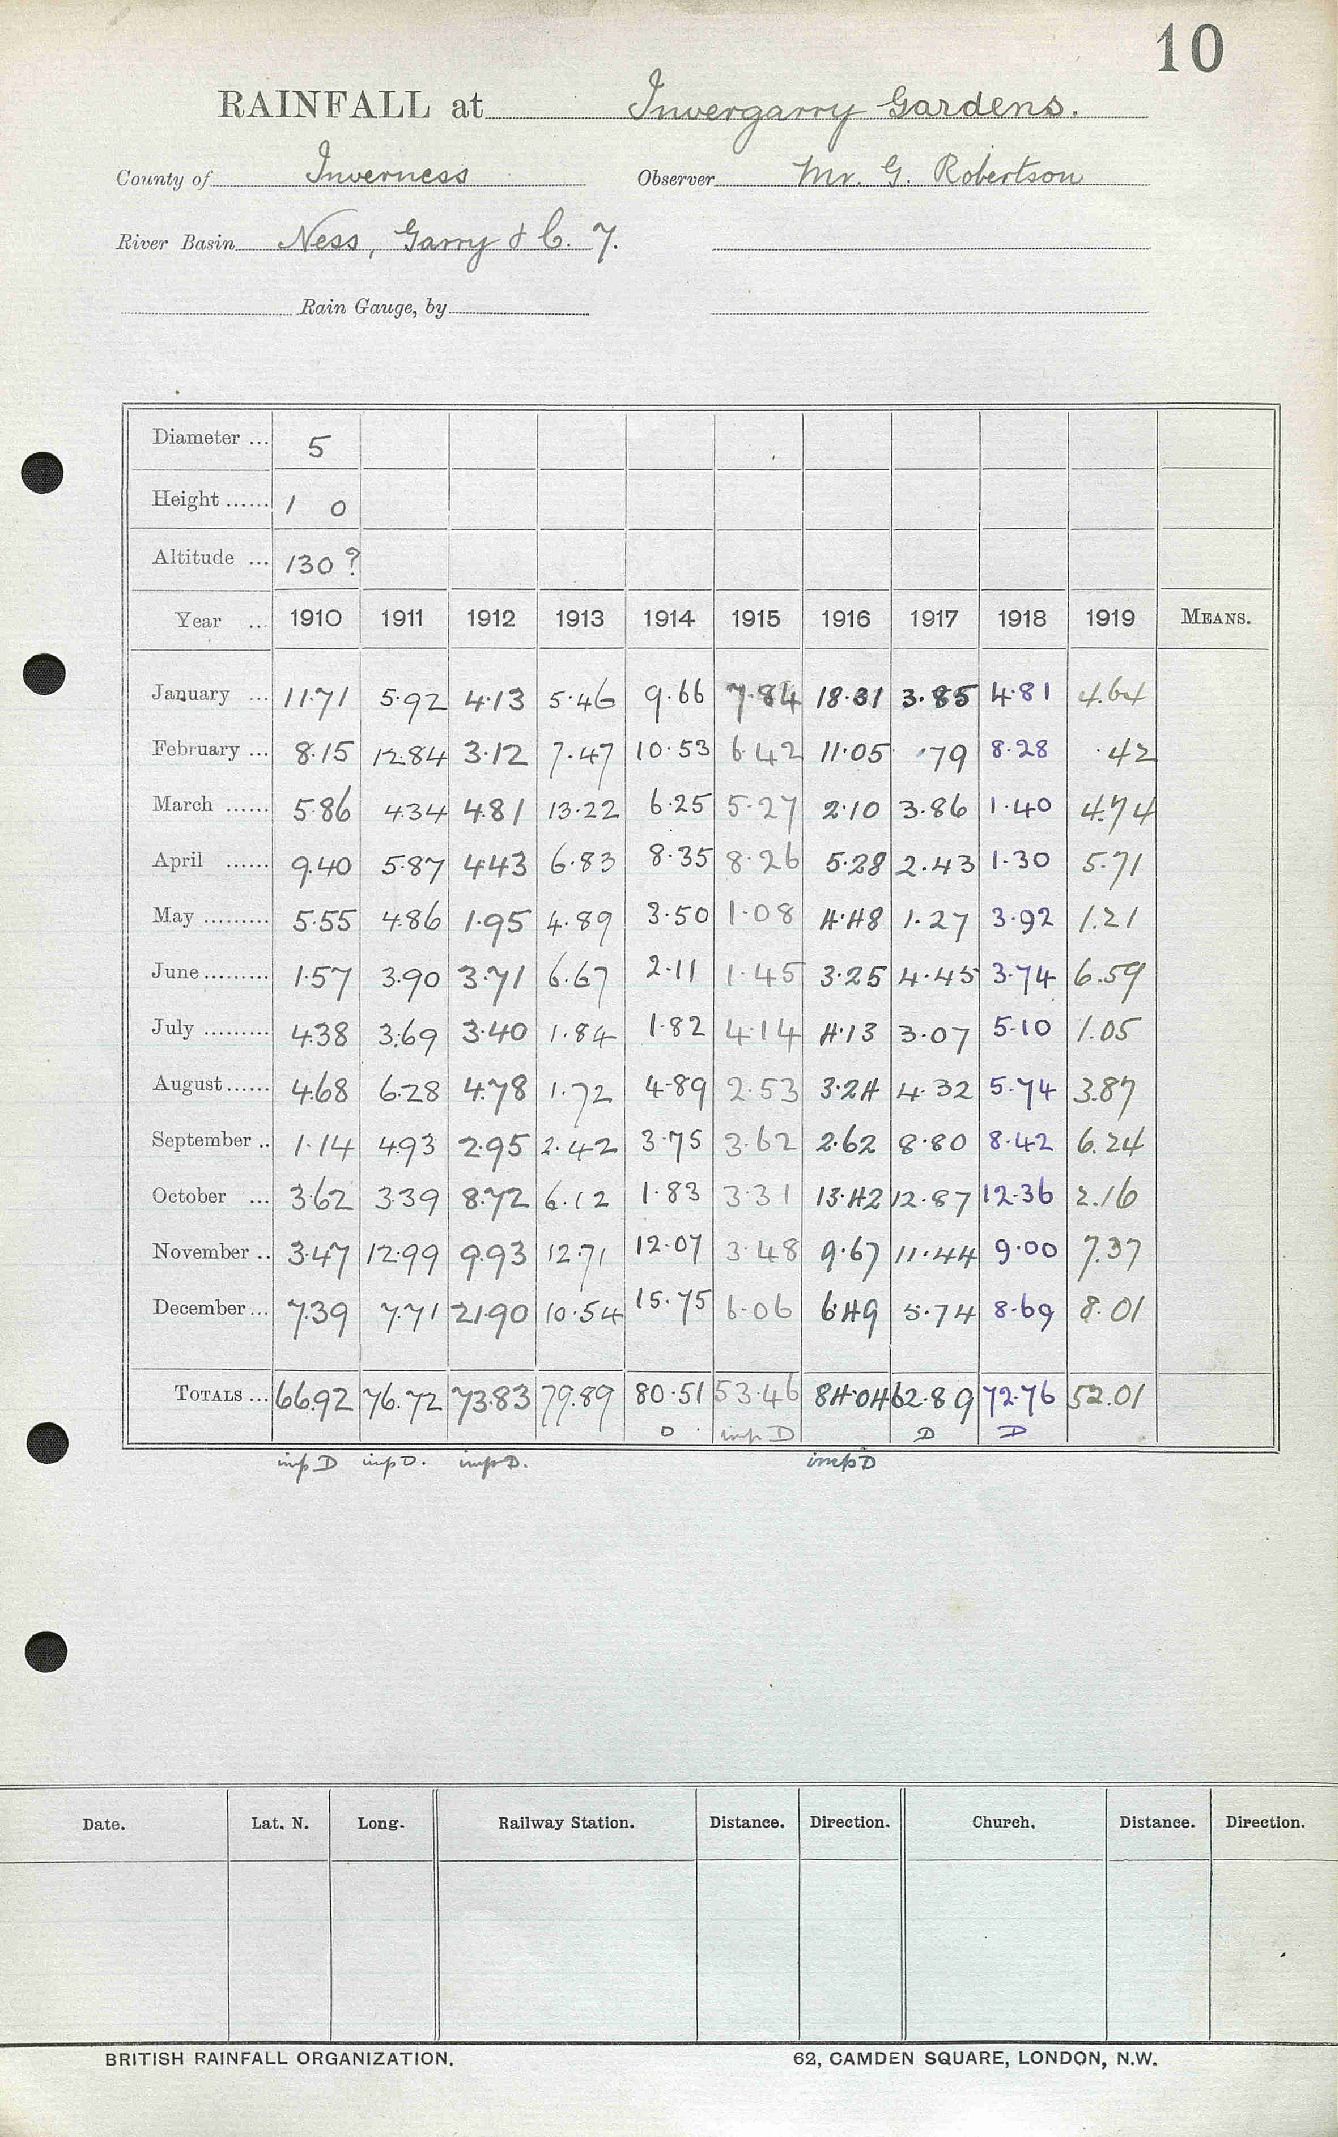 10
RAINFALL at Invergarry Gardens.
County of Inverness Observer Mr. G. Robertson
River Basin Ness, Garry & C. 7.
Rain Gauge, by
Diameter ... 5
Height ...... 1 0
Altitude ... 130 ?
Year ... 1910 1911 1912 1913 1914 1915 1916 1917 1918 1919 MEANS.
January ... 11.71 5.92 4.13 5.46 9.66 7.84 18.31 3.85 4.81 4.64
February ... 8.15 12.84 3.12 7.47 10.53 6.42 11.05 .79 8.28 .42
March ...... 5.86 4.34 4.81 13.22 6.25 5.27 2.10 3.86 1.40 4.74
April ...... 9.40 5.87 4.43 6.83 8.35 8.26 5.28 2.43 1.30 5.71
May ......... 5.55 4.86 1.95 4.89 3.50 1.08 4.48 1.27 3.92 1.21
June ......... 1.57 3.90 3.71 6.67 2.11 1.45 3.25 4.45 3.74 6.59
July ......... 4.38 3.69 3.40 1.84 1.82 4.14 4.13 3.07 5.10 1.05
August ...... 4.68 6.28 4.78 1.72 4.89 2.53 3.24 4.32 5.74 3.87
September .. 1.14 4.93 2.95 2.42 3.75 3.62 2.62 8.80 8.42 6.24
October ... 3.62 3.39 8.72 6.12 1.83 3.31 13.42 12.87 12.36 2.16
November .. 3.47 12.99 9.93 12.71 12.07 3.48 9.67 11.44 9.00 7.37
December ... 7.39 7.71 21.90 10.54 15.75 6.06 6.49 5.74 8.69 8.01
TOTALS ... 66.92 76.72 73.83 79.89 80.51 53.46 84.04 62.89 72.76 52.01
D imp D D D
imp D imp D. imp D. imp D
Date. Lat. N. Long. Railway Station. Distance. Direction. Church. Distance. Direction.
BRITISH RAINFALL ORGANIZATION. 62, CAMDEN SQUARE, LONDON, N.W.